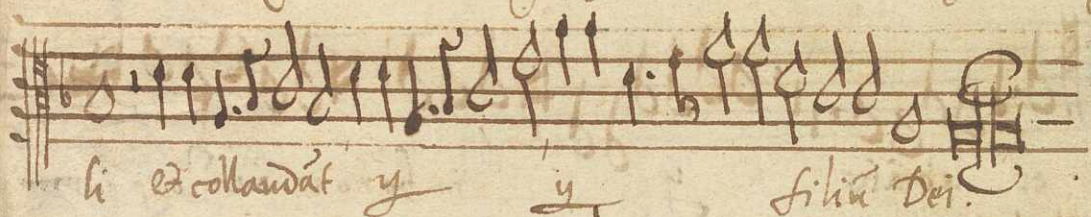 li et collaudāt y y filiū Dei.